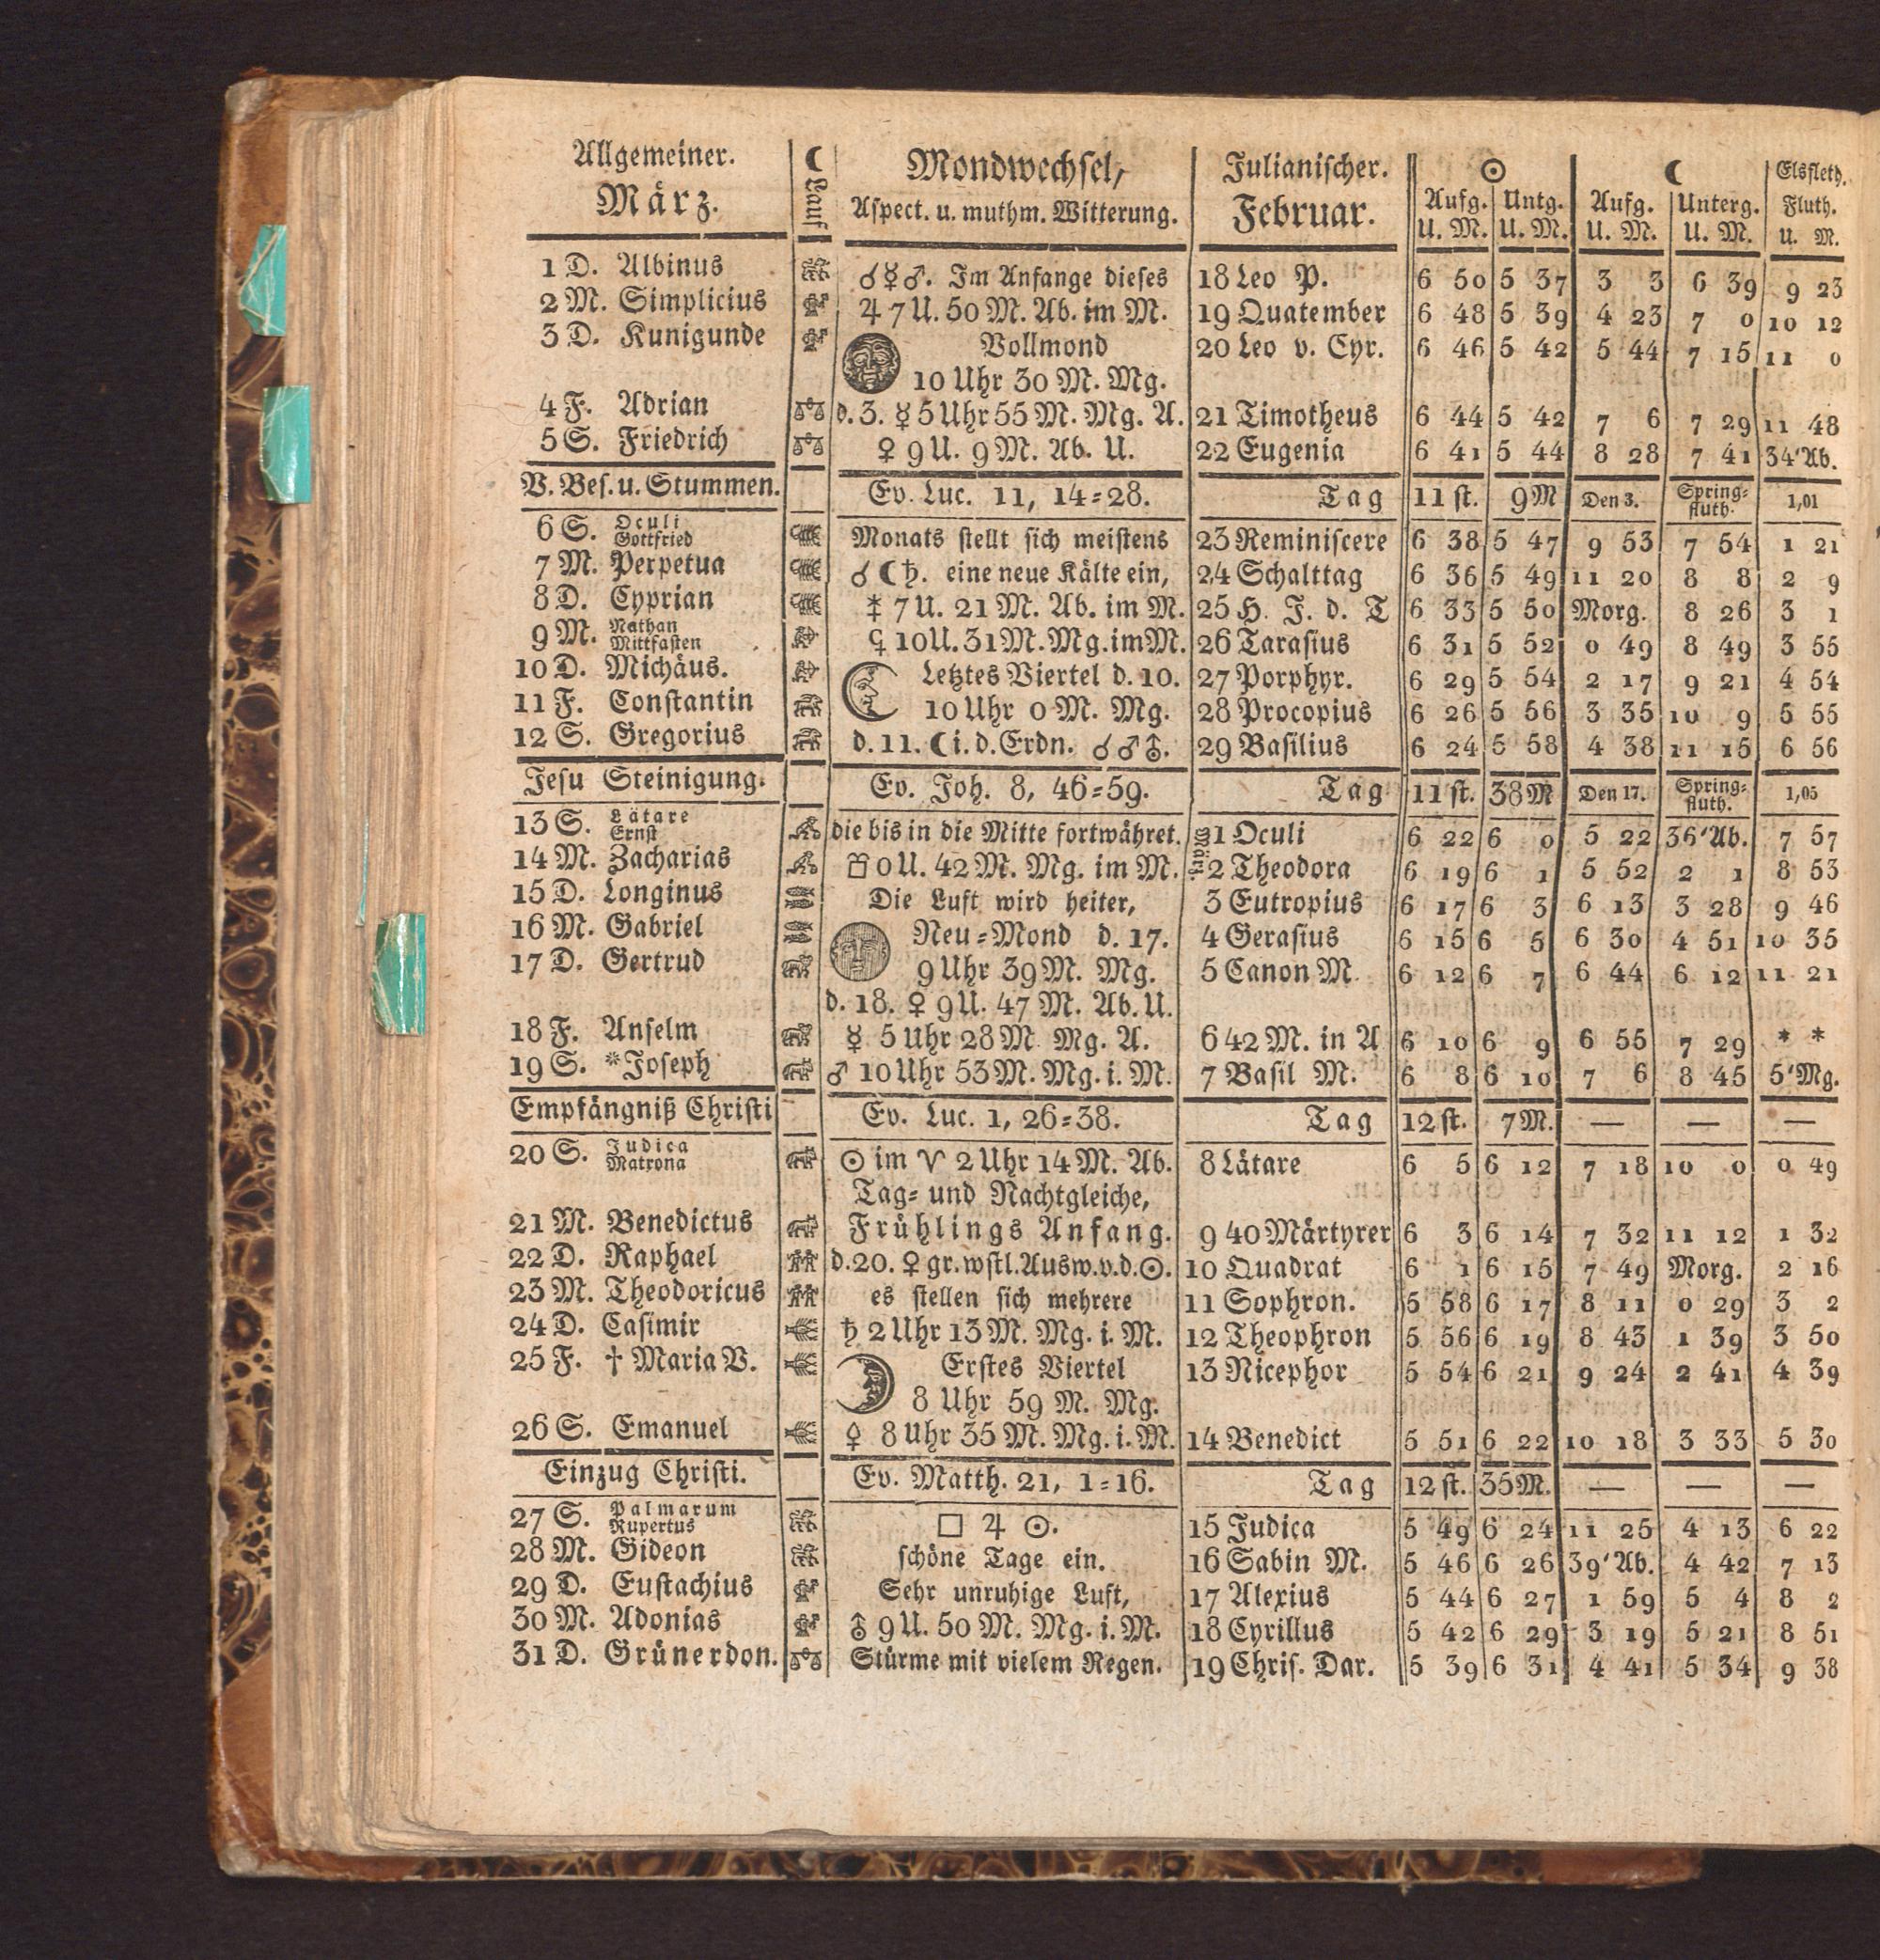 Allgemeiner. ☾ Mondwechsel, Julianischer. ☉ ☾ Elsfleth.
März. Lauf Aspect. u. muthm. Witterung. Februar. Aufg. Untg. Aufg. Unterg. Fluth.
U. M. U. M. U. M. U. M. U. M.
1 D. Albinus ☌☿♂. Im Anfange dieses 18 Leo P. 6 50 5 37 3 3 6 39 9 23
2 M. Simplicius ♃ 7 U. 50 M. Ab. im M. 19 Quatember 6 48 5 39 4 23 7 0 10 12
3 D. Kunigunde Vollmond 20 Leo v. Cyr. 6 46 5 42 5 44 7 15 11 0
10 Uhr 30 M. Mg.
4 F. Adrian d. 3. ☿ 5 Uhr 55 M. Mg. A. 21 Timotheus 6 44 5 42 7 6 7 29 11 48
5 S. Friedrich ♀ 9 U. 9 M. Ab. U. 22 Eugenia 6 41 5 44 8 28 7 41 34'Ab.
V. Bes. u. Stummen. Ev. Luc. 11, 14=28. Tag 11 st. 9 M Den 3. Spring=fluth. 1,01
6 S. Oculi Gottfried Monats stellt sich meistens 23 Reminiscere 6 38 5 47 9 53 7 54 1 21
7 M. Perpetua ☌☾♄. eine neue Kälte ein, 24 Schalttag 6 36 5 49 11 20 8 8 2 9
8 D. Cyprian 7 U. 21 M. Ab. im M. 25 H. J. d. T 6 33 5 50 Morg. 8 26 3 1
9 M. Nathan Mittfasten 10 U. 31 M. Mg. im M. 26 Tarasius 6 31 5 52 0 49 8 49 3 55
10 D. Michäus. Letztes Viertel d. 10. 27 Porphyr. 6 29 5 54 2 17 9 21 4 54
11 F. Constantin 10 Uhr 0 M. Mg. 28 Procopius 6 26 5 56 3 35 10 9 5 55
12 S. Gregorius d. 11. ☾ i. d. Erdn. ☌♂⛢. 29 Basilius 6 24 5 58 4 38 11 15 6 56
Jesu Steinigung. Ev. Joh. 8, 46=59. Tag 11 st. 38 M Den 17. Spring=fluth. 1,05
13 S. Lätare Ernst die bis in die Mitte fortwähret. März. 1 Oculi 6 22 6 0 5 22 36'Ab. 7 57
14 M. Zacharias 0 U. 42 M. Mg. im M. 2 Theodora 6 19 6 1 5 52 2 1 8 53
15 D. Longinus Die Luft wird heiter, 3 Eutropius 6 17 6 3 6 13 3 28 9 46
16 M. Gabriel Neu=Mond d. 17. 4 Gerasius 6 15 6 5 6 30 4 51 10 35
17 D. Gertrud 9 Uhr 39 M. Mg. 5 Canon M. 6 12 6 7 6 44 6 12 11 21
d. 18. ♀ 9 U. 47 M. Ab. U.
18 F. Anselm ☿ 5 Uhr 28 M. Mg. A. 6 42 M. in A 6 10 6 9 6 55 7 29 * *
19 S. *Joseph ♂ 10 Uhr 53 M. Mg. i. M. 7 Basil M. 6 8 6 10 7 6 8 45 5'Mg.
Empfängniß Christi Ev. Luc. 1, 26=38. Tag 12 st. 7 M. — — —
20 S. Judica Matrona ☉ im ♈ 2 Uhr 14 M. Ab. 8 Lätare 6 5 6 12 7 18 10 0 0 49
Tag= und Nachtgleiche,
21 M. Benedictus Frühlings Anfang. 9 40 Märtyrer 6 3 6 14 7 32 11 12 1 32
22 D. Raphael d. 20. ♀ gr. wstl. Ausw. v. d. ☉. 10 Quadrat 6 1 6 15 7 49 Morg. 2 16
23 M. Theodoricus es stellen sich mehrere 11 Sophron. 5 58 6 17 8 11 0 29 3 2
24 D. Casimir ♄ 2 Uhr 13 M. Mg. i. M. 12 Theophron 5 56 6 19 8 43 1 39 3 50
25 F. † Maria V. Erstes Viertel 13 Nicephor 5 54 6 21 9 24 2 41 4 39
8 Uhr 59 M. Mg.
26 S. Emanuel 8 Uhr 35 M. Mg. i. M. 14 Benedict 5 51 6 22 10 18 3 33 5 30
Einzug Christi. Ev. Matth. 21, 1=16. Tag 12 st. 35 M. — — —
27 S. Palmarum Rupertus □ ♃ ☉. 15 Judica 5 49 6 24 11 25 4 13 6 22
28 M. Gideon schöne Tage ein. 16 Sabin M. 5 46 6 26 39'Ab. 4 42 7 13
29 D. Eustachius Sehr unruhige Luft, 17 Alexius 5 44 6 27 1 59 5 4 8 2
30 M. Adonias ⛢ 9 U. 50 M. Mg. i. M. 18 Cyrillus 5 42 6 29 3 19 5 21 8 51
31 D. Grünerdon. Stürme mit vielem Regen. 19 Chris. Dar. 5 39 6 31 4 41 5 34 9 38